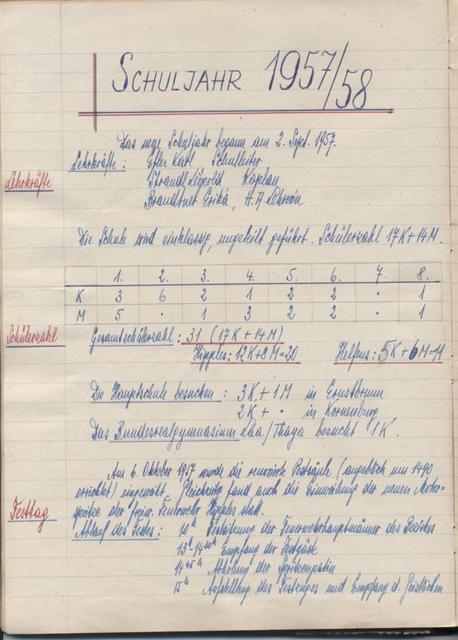 SCHULJAHR 1957/58
Das neue Schuljahr begann am 2. Sept. 1957.
Lehrkräfte
Lehrkräfte: Karl Schulleiter
Strandl Leopold Kaplan
Brandtner Erika, H.A. Lehrerin
Die Schule wird einklassig, ungeteilt geführt. Schülerzahl 17K + 14M.
1. 2. 3. 4. 5. 6. 7. 8.
K 3 6 2 1 2 2 · 1
M 5 · 1 3 2 2 · 1
Schülerzahl
Gesamtschülerzahl: 31 (17K + 14M)
Hipples: 12K+8M=20 Helfens: 5K+6M=11
Die Hauptschule besuchen: 3K + 1M in Ernstbrunn
2K + · in Korneuburg
Das Bundesrealgymnasium Laa/Thaya besucht 1K.
Am 6. Oktober 1957 wurde die renovierte Pestsäule (angeblich um 1490
errichtet) eingeweiht. Gleichzeitig fand auch die Einweihung der neuen Motor-
spritze der Freiw. Feuerwehr Hipples statt.
Festtag
Ablauf des Festes: Feuerwehrhauptmänner des Bezirkes
Empfang der Festgäste
Abholung der Spritzenpatin
15h Aufstellung des Festzuges und Empfang d. Geistlichen